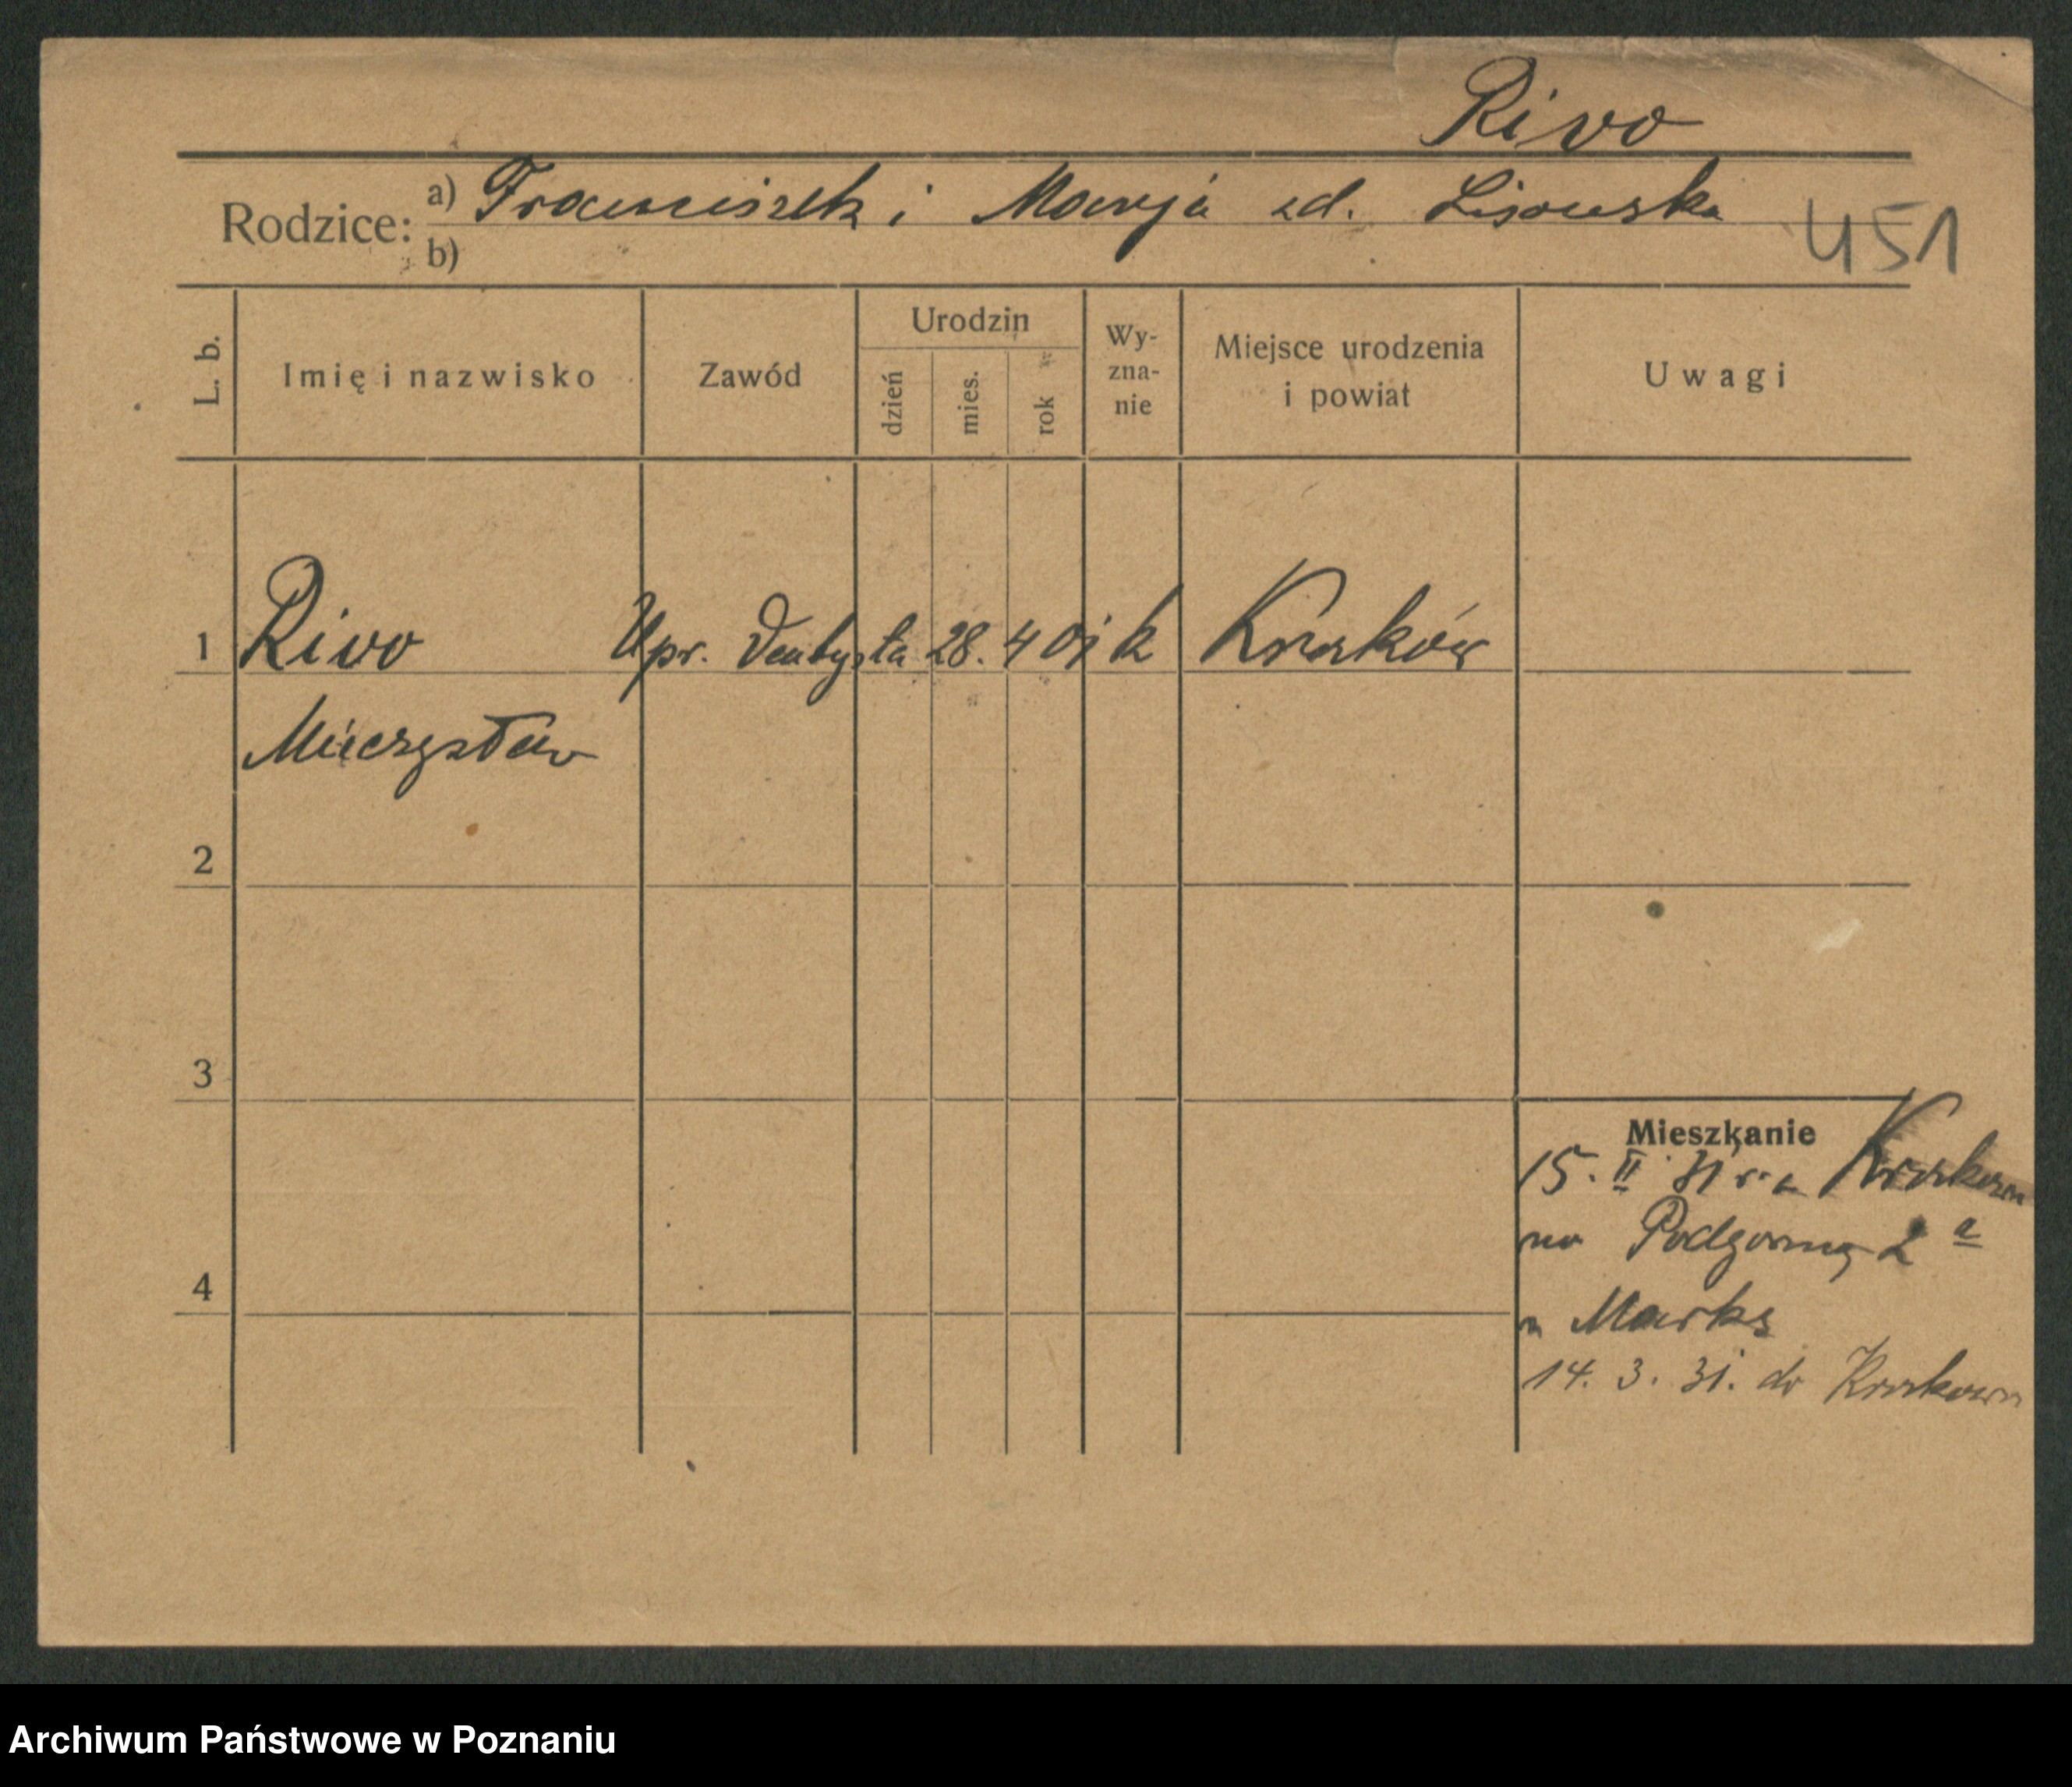 Rivo
Rodzice: a) Franciszek i Marja zd. Lisowska
b)
451
L. b.
Imię i nazwisko
Zawód
Urodzin
dzień
mies.
rok
Wy-
zna-
nie
Miejsce urodzenia
i powiat
Uwagi
1 Rivo Upr. Dentysta 28. 4 01 k Kraków
Mieczysław
2
3
4
Mieszkanie
15. II 31 r. z Krakowa
na Podgorną 2 a
u Marks
14. 3. 31. do Krakowa
Archiwum Państwowe w Poznaniu